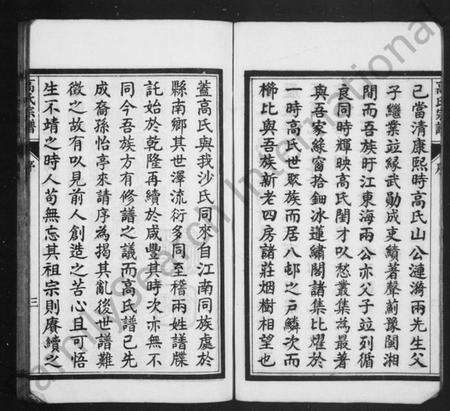 高氏宗譜
己當清康熙時高氏山公漣漪兩先生父
子繼業竝緣武勳成吏績著聲薊豫閩湘
間而吾族盱江東海兩公亦父子竝列循
良同時輝映高氏閨才以愁叢集為最著
與吾家綠窗拾鈿冰蓮繡閣諸集比燿於
一時高氏世聚族而居八邨之戶鱗次而
櫛比與吾族新老四房諸莊烟樹相望也
蓋高氏與我沙氏同來自江南同族處於
縣南鄉其世澤流衍多同至稽兩姓譜牒
託始於乾隆再續於咸豐其時次亦無不
同今吾族方有修譜之議而高氏譜已先
成裔孫怡亭來請序為揭其亂後世譜難
徵之故有以見前人創造之苦心且可悟
生不靖之時人苟無忘其祖宗則賡續之
高氏宗譜
序
三
FamilySearch International